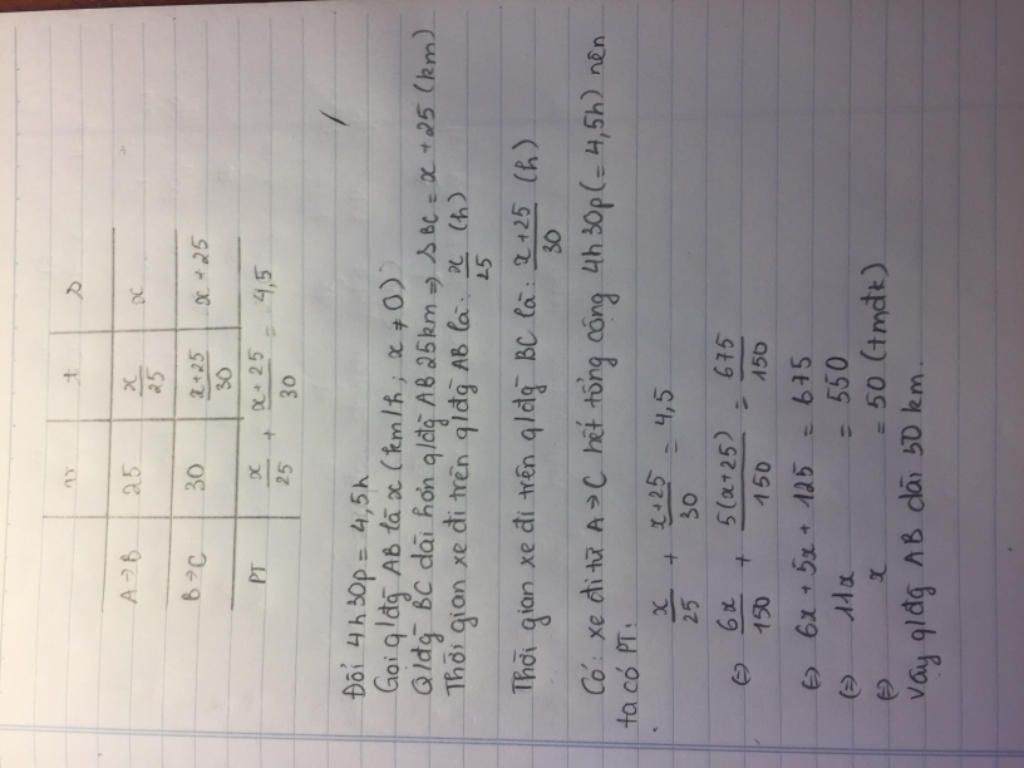 v t s
A→B 25 x/25 x
B→C 30 x+25/30 x+25
PT x/25 + x+25/30 = 4,5
Đổi 4h30p = 4,5h
Gọi q/đg AB là x (km/h; x ≠ 0)
Q/đg BC dài hơn q/đg AB 25km ⇒ s BC = x + 25 (km)
Thời gian xe đi trên q/đg AB là: x/25 (h)
Thời gian xe đi trên q/đg BC là: x+25/30 (h)
Có: xe đi từ A→C hết tổng cộng 4h30p (= 4,5h) nên
ta có PT:
x/25 + x+25/30 = 4,5
⇔ 6x/150 + 5(x+25)/150 = 675/150
⇔ 6x + 5x + 125 = 675
⇔ 11x = 550
⇔ x = 50 (tmđk)
Vậy q/đg AB dài 50 km.